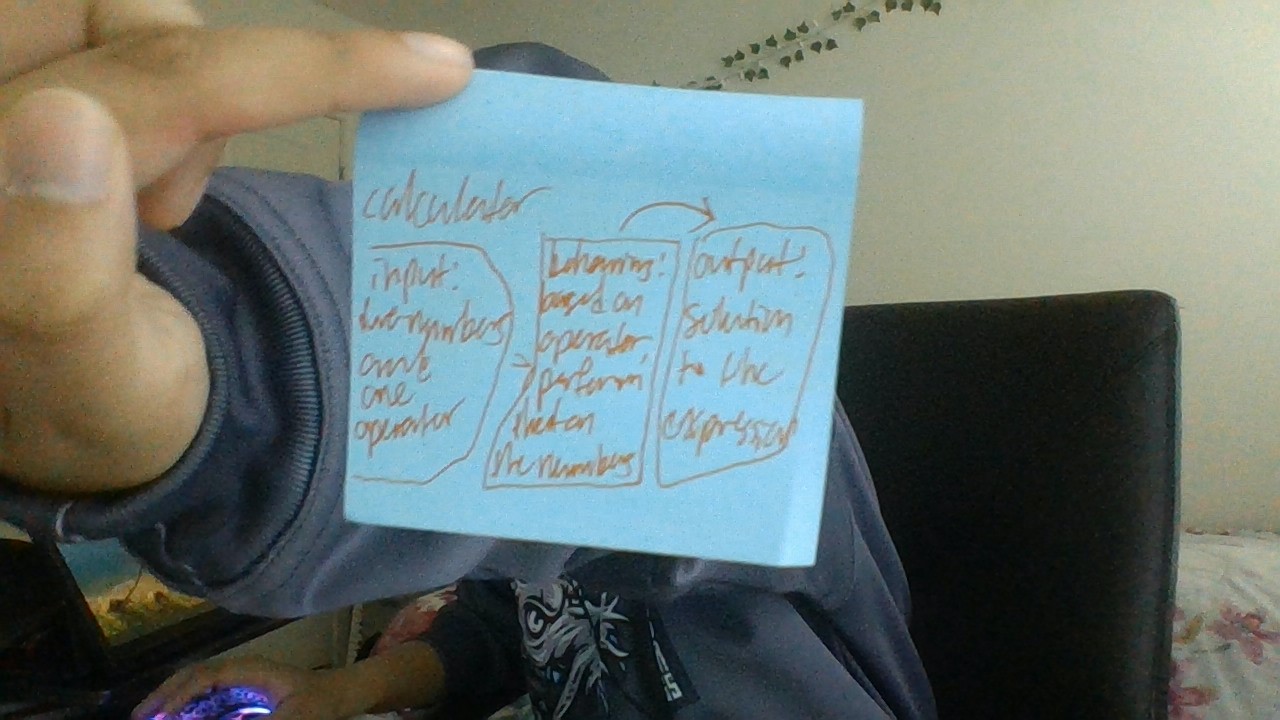 calculator
input:
two numbers
and
one
operator
behaviors:
based on
operator,
perform
that on
the numbers
output:
solution
to the
expression